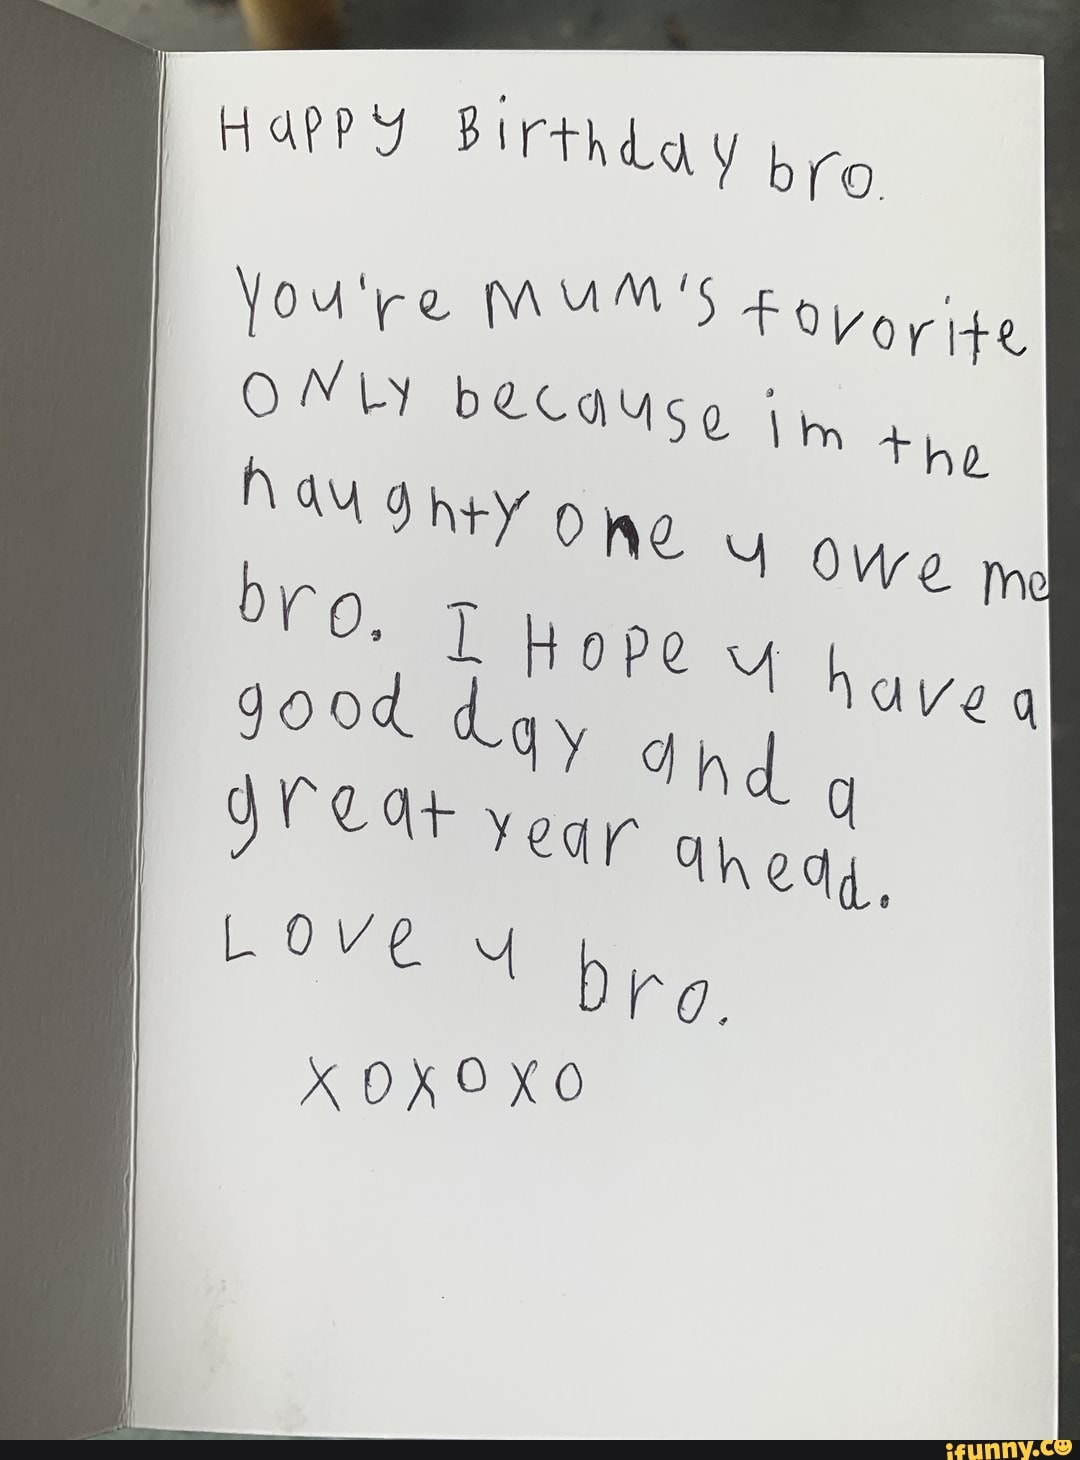 Happy Birthday bro.
You're mum's fovorite
ONLY because im the
naughty one u owe me
bro. I Hope u have a
good day and a
great year ahead.
Love u bro.
xoxoxo
ifunny.co